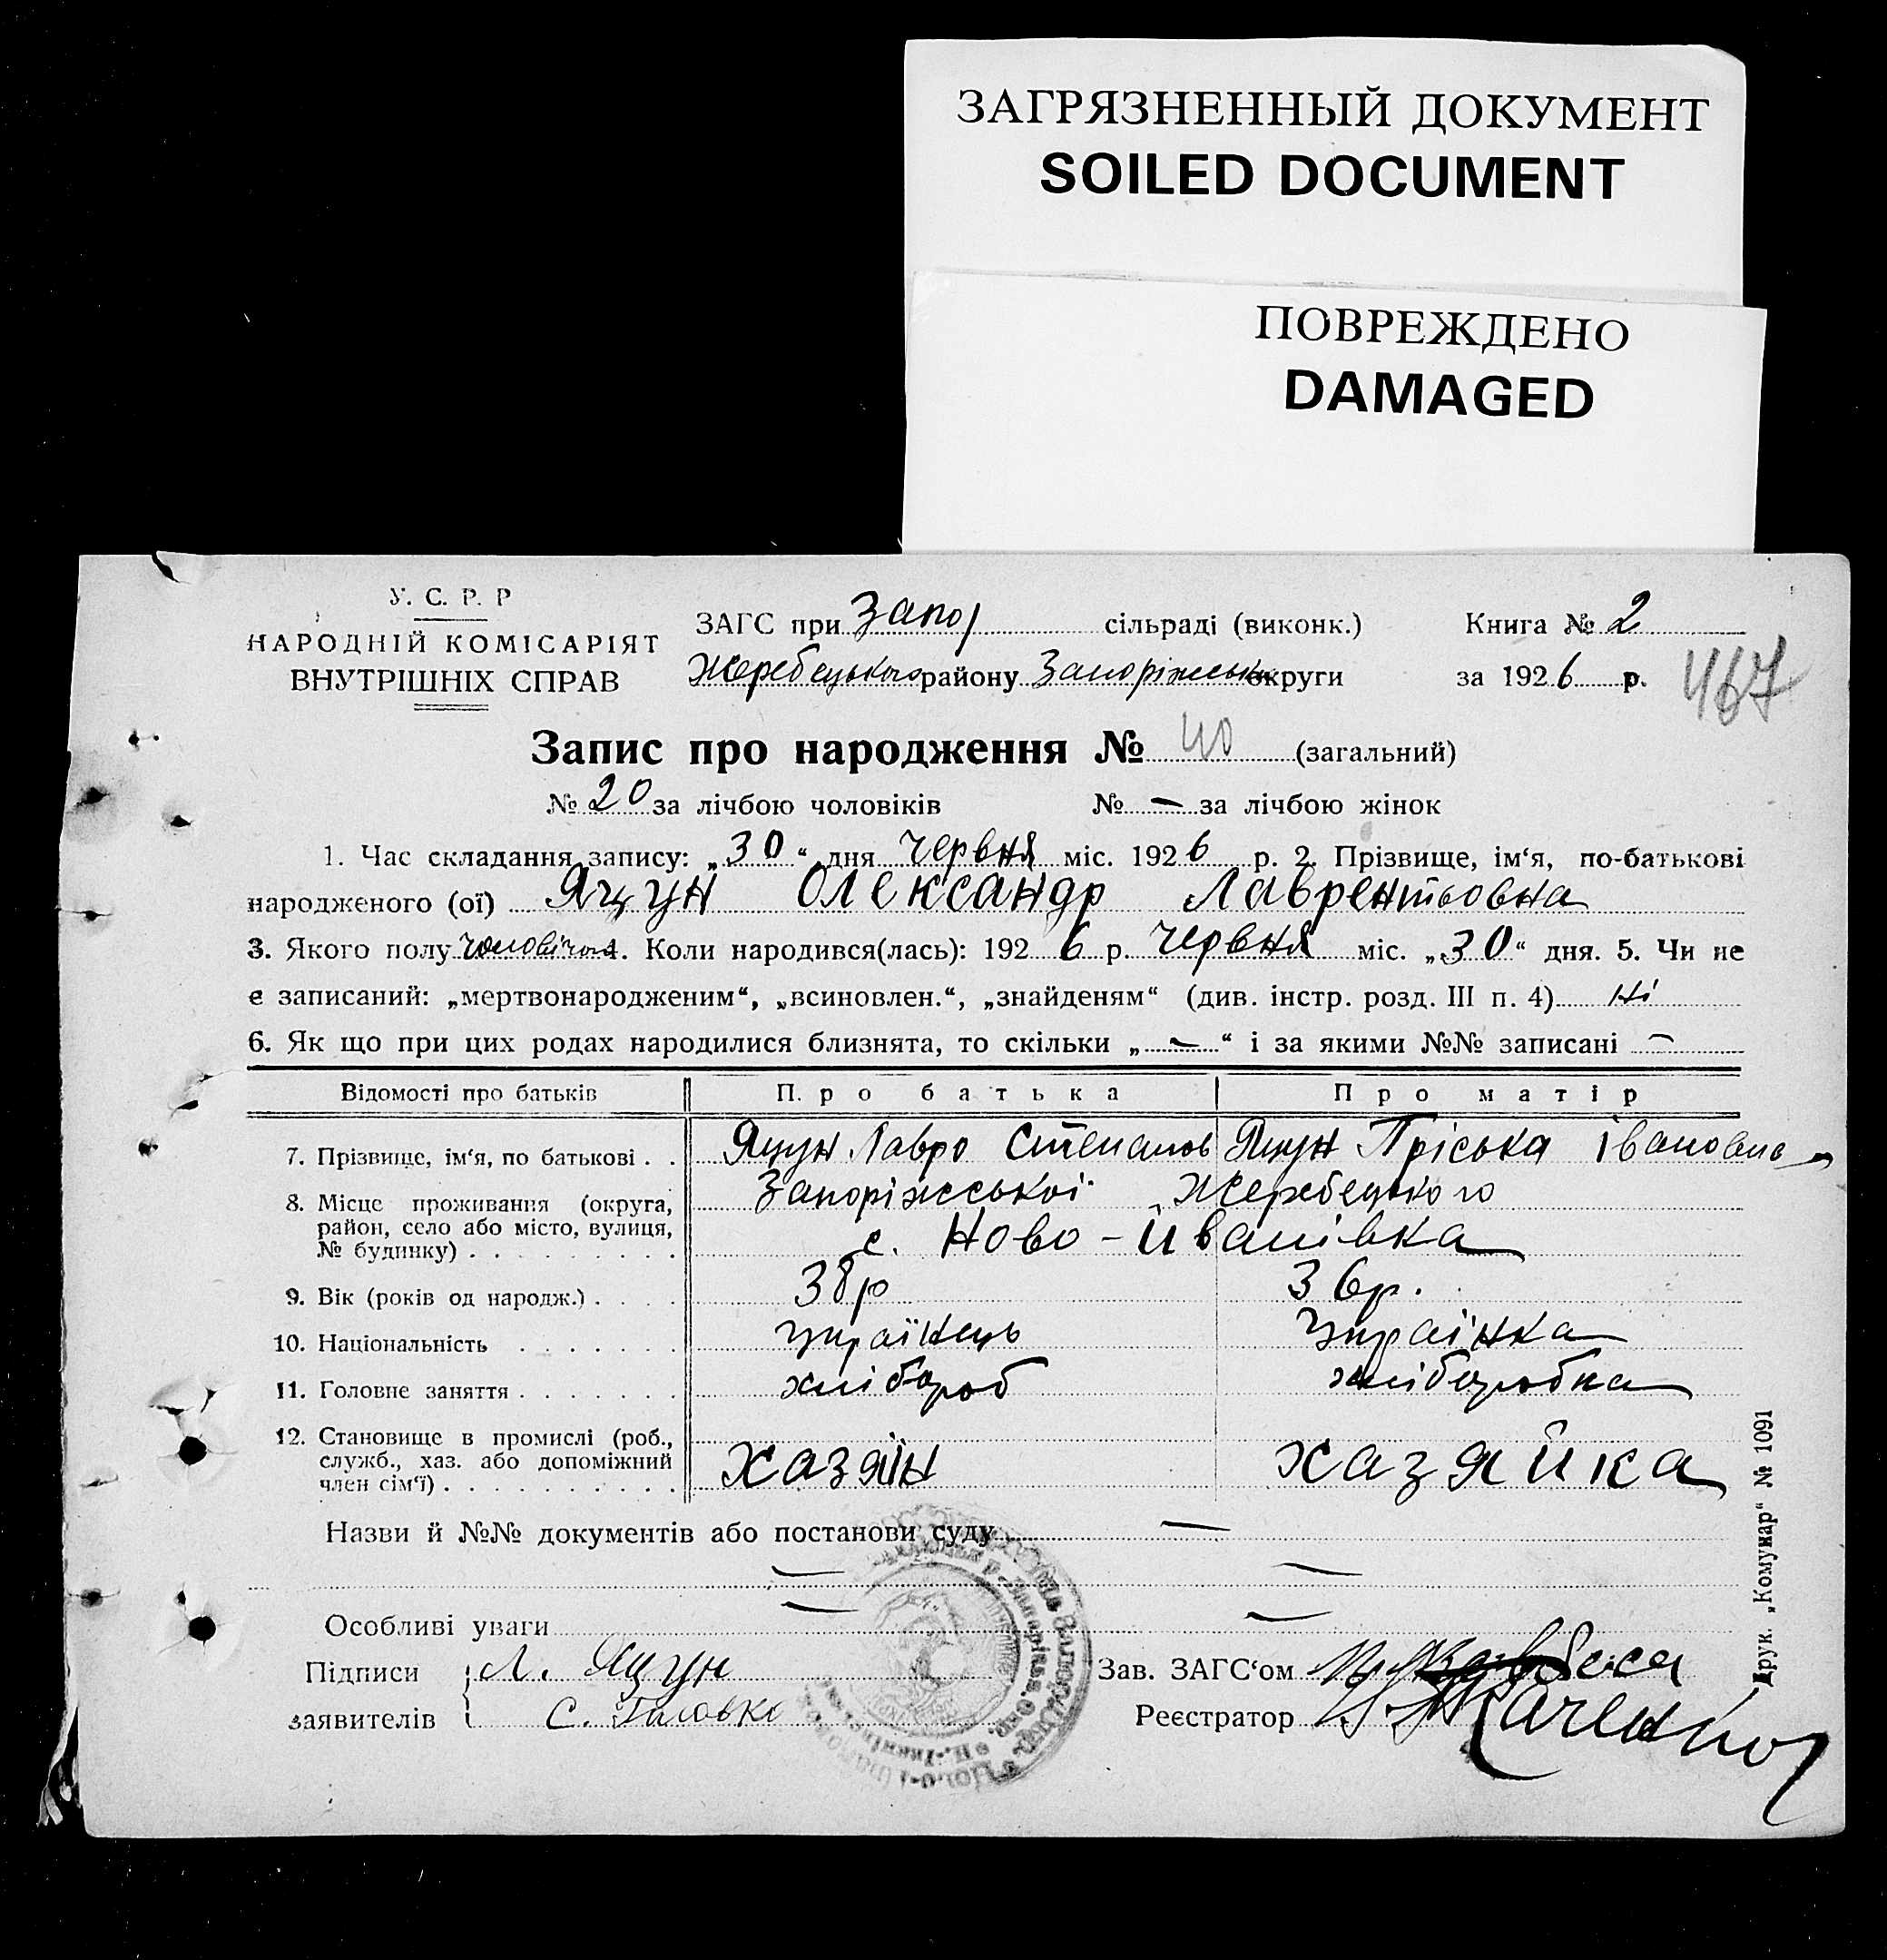 ЗАГРЯЗНЕННЫЙ ДОКУМЕНТ
SOILED DOCUMENT
ПОВРЕЖДЕНО
DAMAGED
У. С. Р. Р
НАРОДНІЙ КОМІСАРІЯТ
ВНУТРІШНІХ СПРАВ
ЗАГС при Запор сільраді (виконк.) Книга № 2
Жеребецького району Запоріжськ округи за 1926 р. 467
Запис про народження № 40 (загальний)
№ 20 за лічбою чоловіків № — за лічбою жінок
1. Час складання запису: „30“ дня червня міс. 1926 р. 2. Прізвище, ім‘я, по-батькові
народженого (ої) Яцун Олександр Лаврентьовна
3. Якого полу чоловічої 4. Коли народився(лась): 1926 р. червня міс. „30“ дня. 5. Чи не
є записаний: „мертвонародженим“, „всиновлен.“, „знайденям“ (див. інстр. розд. III п. 4) ні
6. Як що при цих родах народилися близнята, то скільки „—“ і за якими №№ записані —
Відомості про батьків Про батька Про матір
7. Прізвище, ім‘я, по батькові . . Яцун Лавро Степанов Яцун Пріська Івановна
8. Місце проживання (округа, Запоріжської Жеребецького
район, село або місто, вулиця,
№ будинку) . . . . . . . . . с. Ново-Иванівка
9. Вік (років од народж.) . . . . 38р 36р.
10. Національність . . . . . . . українець українка
11. Головне заняття . . . . . . . хлібороб хліборобка
12. Становище в промислі (роб.,
служб., хаз. або допоміжний хазяїн хазяйка
член сім‘ї) . . . . . . . . . .
Назви й №№ документів або постанови суду —
— —
Особливі уваги — —
Підписи Л. Яцун Зав. ЗАГС‘ом
заявителів С. Реєстратор
Друк. „Комунар“ № 1091